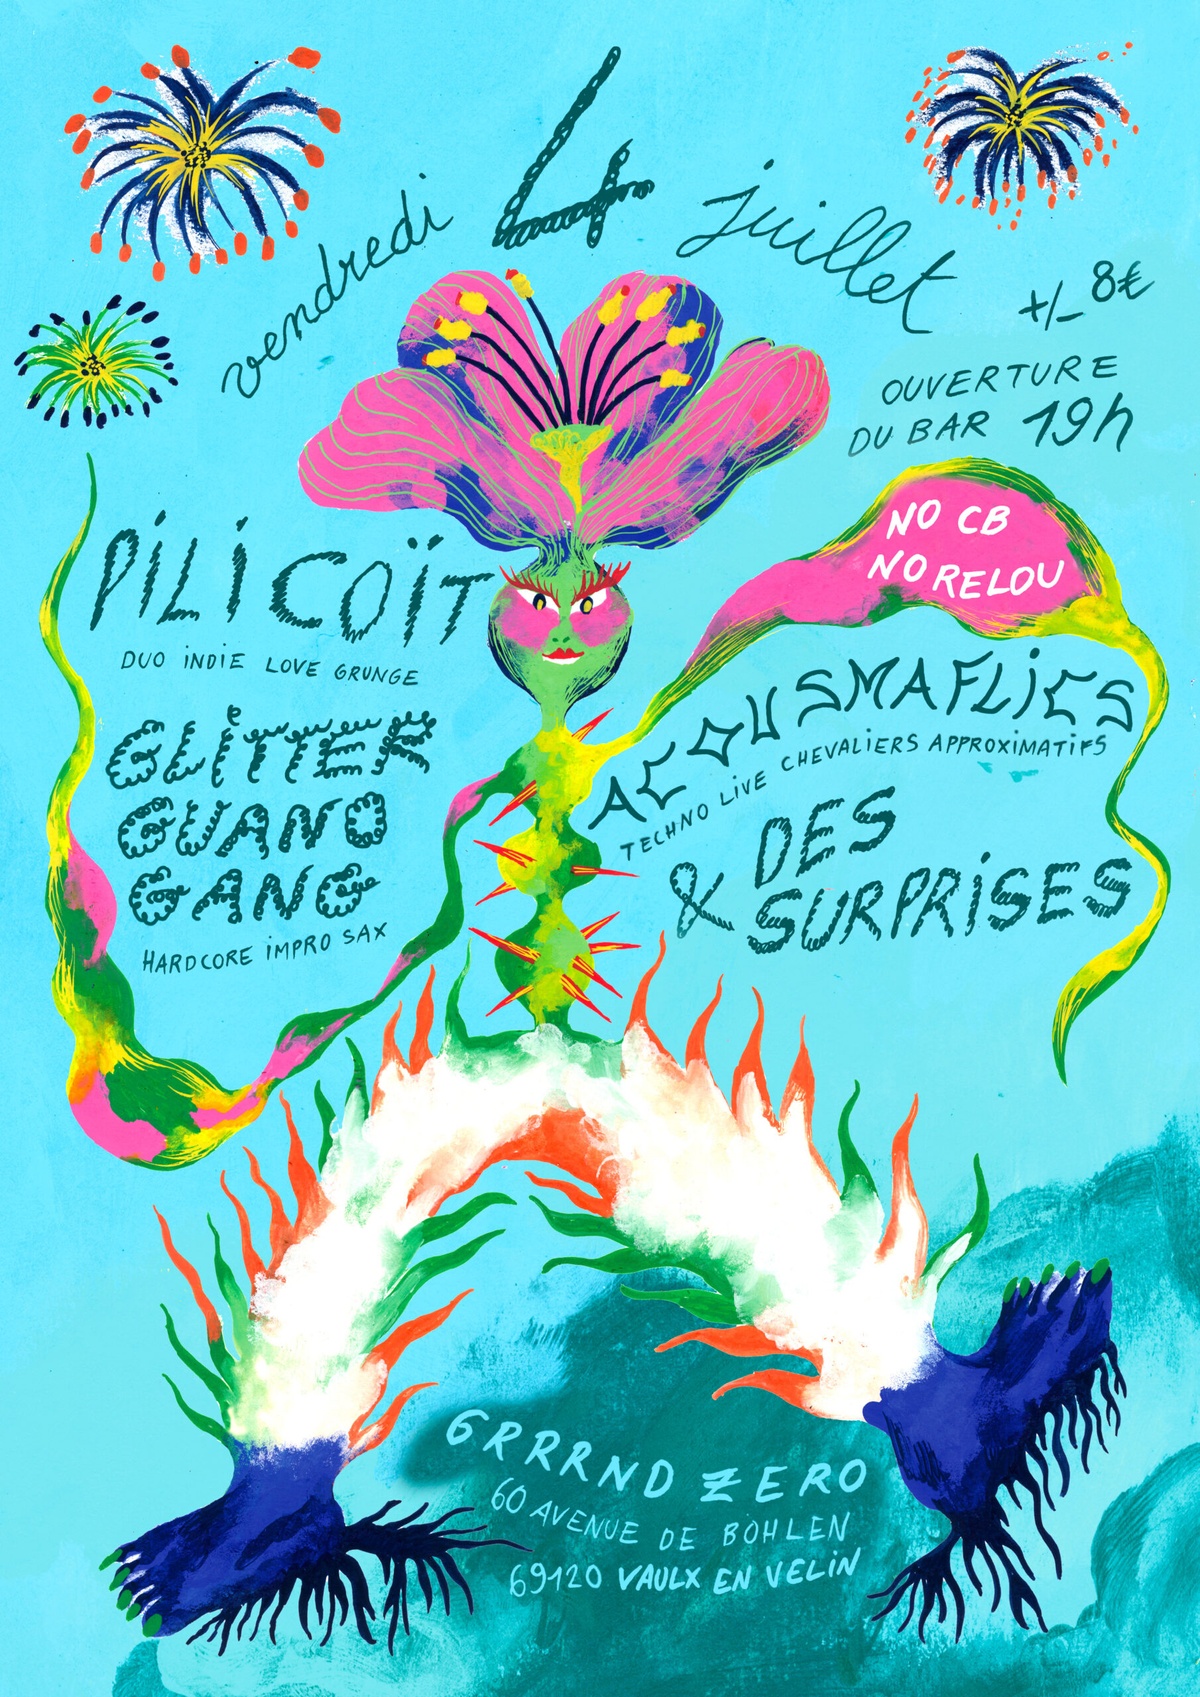 vendredi 4 juillet
+/- 8€
OUVERTURE
DU BAR 19h
NO CB
NO RELOU
PILI COÏT
DUO INDIE LOVE GRUNGE
GLITTER
GUANO
GANG
HARDCORE IMPRO SAX
ACOUSMAFLICS
TECHNO LIVE CHEVALIERS APPROXIMATIFS
& DES
SURPRISES
GRRRND ZERO
60 AVENUE DE BOHLEN
69120 VAULX EN VELIN